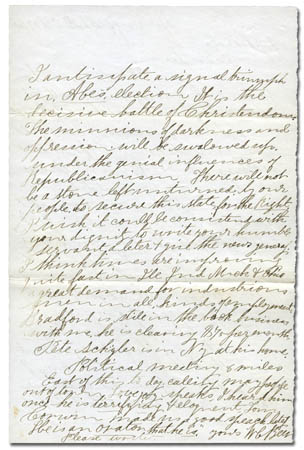 I antisipate a signal triumph
in Abes election. It is the
decisive battle of Christendom
The minnions of darkness and
oppression will be swalowed up
under the genial influences of
Republicanism. There will not
be a stone left unturned by our
people to secure this state for the Right
I wish it could be consistent with
your dignity to write your humble
servant a later & give the news generaly
I think times are improving
quite fast in Ills Ind Mich &
great demand for industrious
men in all kinds of employment
Bradford is still in the book business
with me he is clearing $3 per
Pete is in NY at his home
Political meeting 8 miles
East of this to day
out of town speaks I heard him
once he is terrificly eloquent Tom
Corwin made a good speach
He is an orator that he is yours
Please write